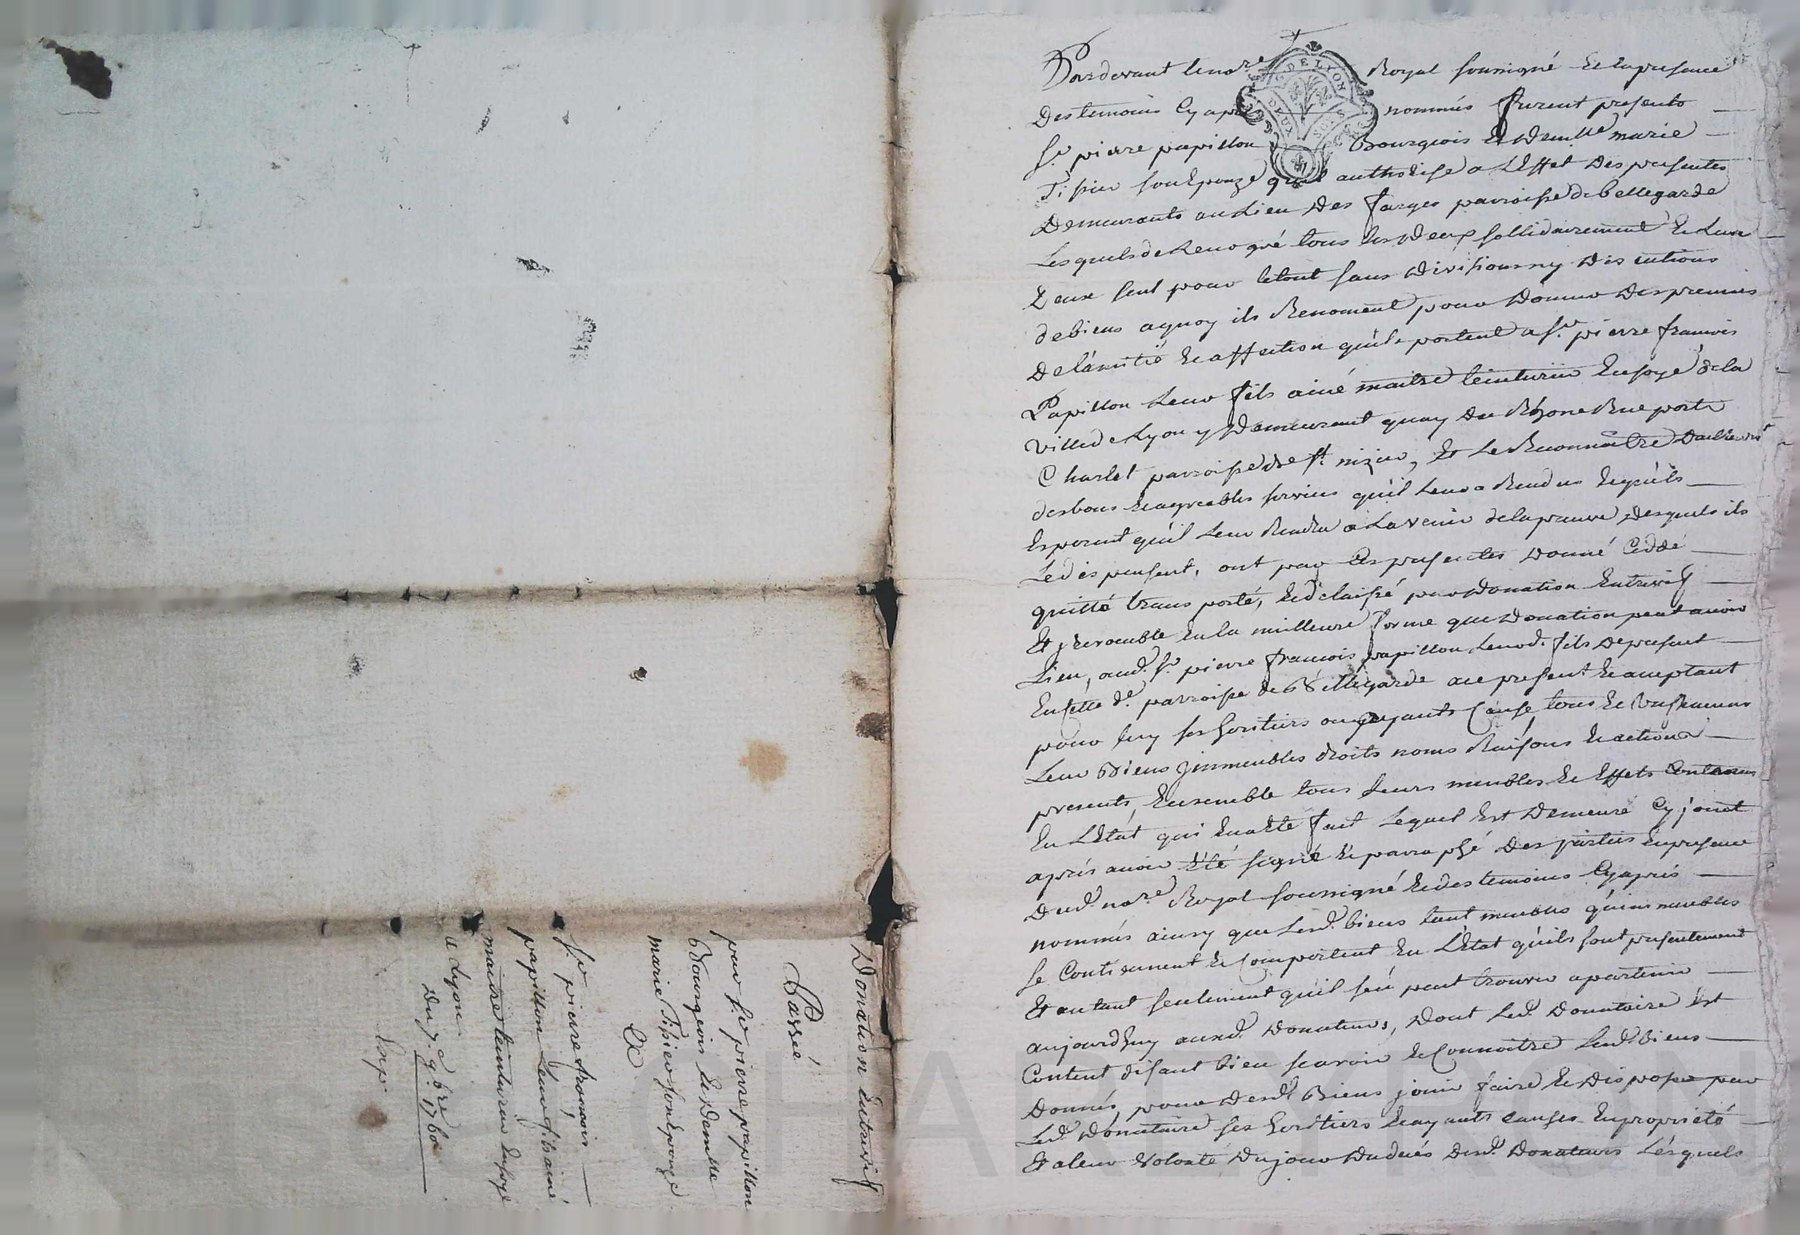 Donation Entrevifs
Passée
par Sr. pierre papillon
Bourgeois Et Demlle
marie Tisier son Epouze
A
Sr. pierre francois
papillon Leur fils ainé
maitre teinturier En soye
a Lyon
Du 9bre 1760
Exp.
Pardevant le nore Royal soussigné Et En presence
Des temoins Cy apres nommés furent presents
Sr. pierre papillon Bourgeois Et Demlle marie
Tisier son Epouze qu'il authorise a L'Effet Des presentes
Demeurants au Lieu Des farges parroisse de bellegarde
Lesquels de Leur gré tous les deux sollidairement Et L'un
D'eux seul pour le tout sans Division ny Discutions
de biens a quoy ils Renoncent pour Donner Des preuves
De L'amitié Et affection qu'ils portent a Sr. pierre francois
Papillon Leur fils ainé maitre teinturier En soye de la
ville de Lyon y Demeurant quay Du Rhone Rue port
Charlet parroisse de St. nizier, Et Le Reconnoitre
des bons Et agreables services qu'il Leur a Rendus Et qu'ils
Esperent qu'il Leur Rendra a L'avenir de la preuve Desquels ils
Le dispensent, ont par Ces presentes Donné Ceddé
quitté transporté, Et délaissé par Donation Entrevifs
Et jrrevocable En la meilleure forme que Donation peut avoir
Lieu, aud. Sr. pierre francois papillon Leurd. fils De present
En Cette de. parroisse de Bellegarde ace present Et acceptant
pour luy ses heritiers ou ayants Cause tous Et
Leur Biens jmmeubles droits noms Raisons Et actions
presents Ensemble tous Leurs meubles Et Effets Contenus
En L'Etat qui En a Eté fait Lequel Est Demeuré Cy joint
aprés avoir Eté signé Et parraphé Des parties En presence
Dud. nore Royal soussigné Et des temoins Cy aprés
nommés ainsy que Lesd. biens tant meubles qu'immeubles
se Contienent Et Comportent En L'Etat qu'ils sont presentement
Et autant seulement qu'il s'en peut trouver apartenir
aujourd'huy auxd. Donateurs, Dont Led. Donataire Est
Content disant bien scavoir Et Connoitre Lesd. biens
Donnés, pour Desd. Biens jouir faire Et Disposer par
Led. Donataire ses heritiers Et ayants causes En proprieté
Et a leur Volonté Du jour Du decés desd. Donateurs Lesquels